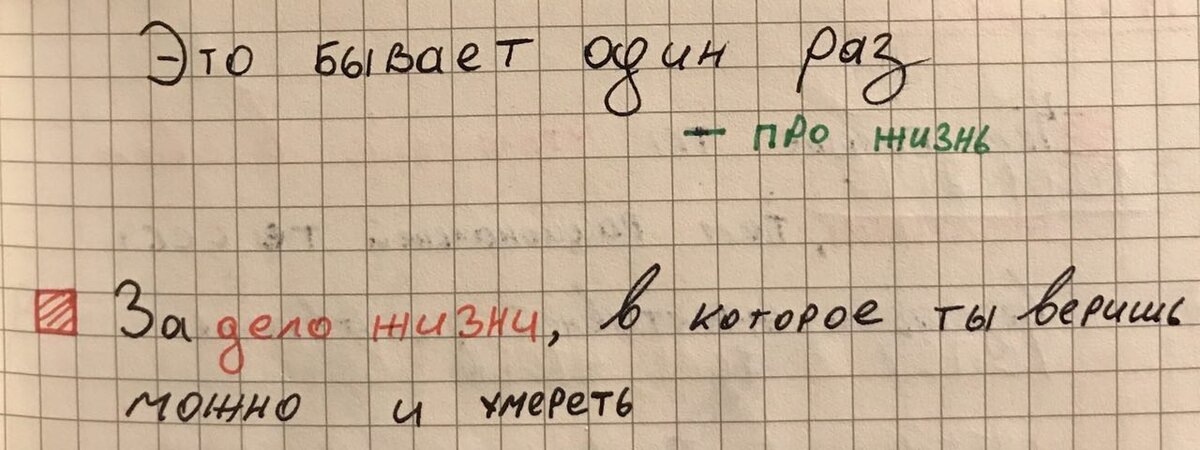 Это бывает один раз
— про жизнь
За дело жизни, в которое ты веришь
можно и умереть